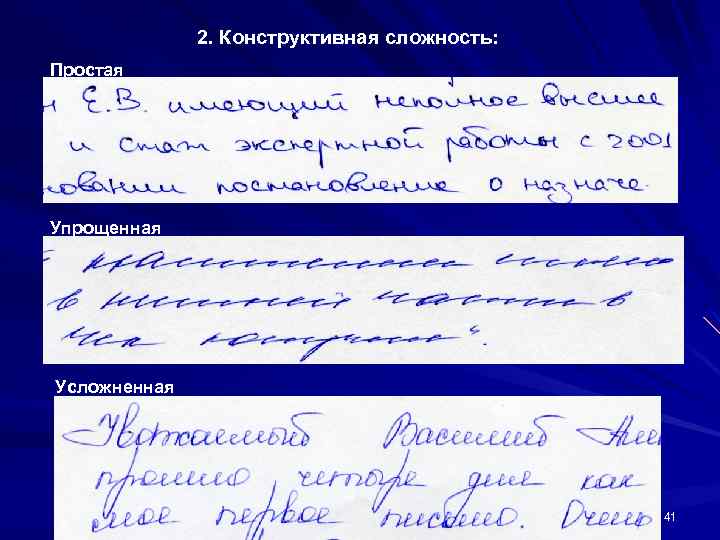 2. Конструктивная сложность:
Простая
н Е.В. имеющий неполное высшее
и стаж экспертной работы с 2001
новании постановление о назначе
Упрощенная
в нижней части в
Усложненная
Уважаемый Василий
прошло четыре дня как
мое первое письмо. Очень
41